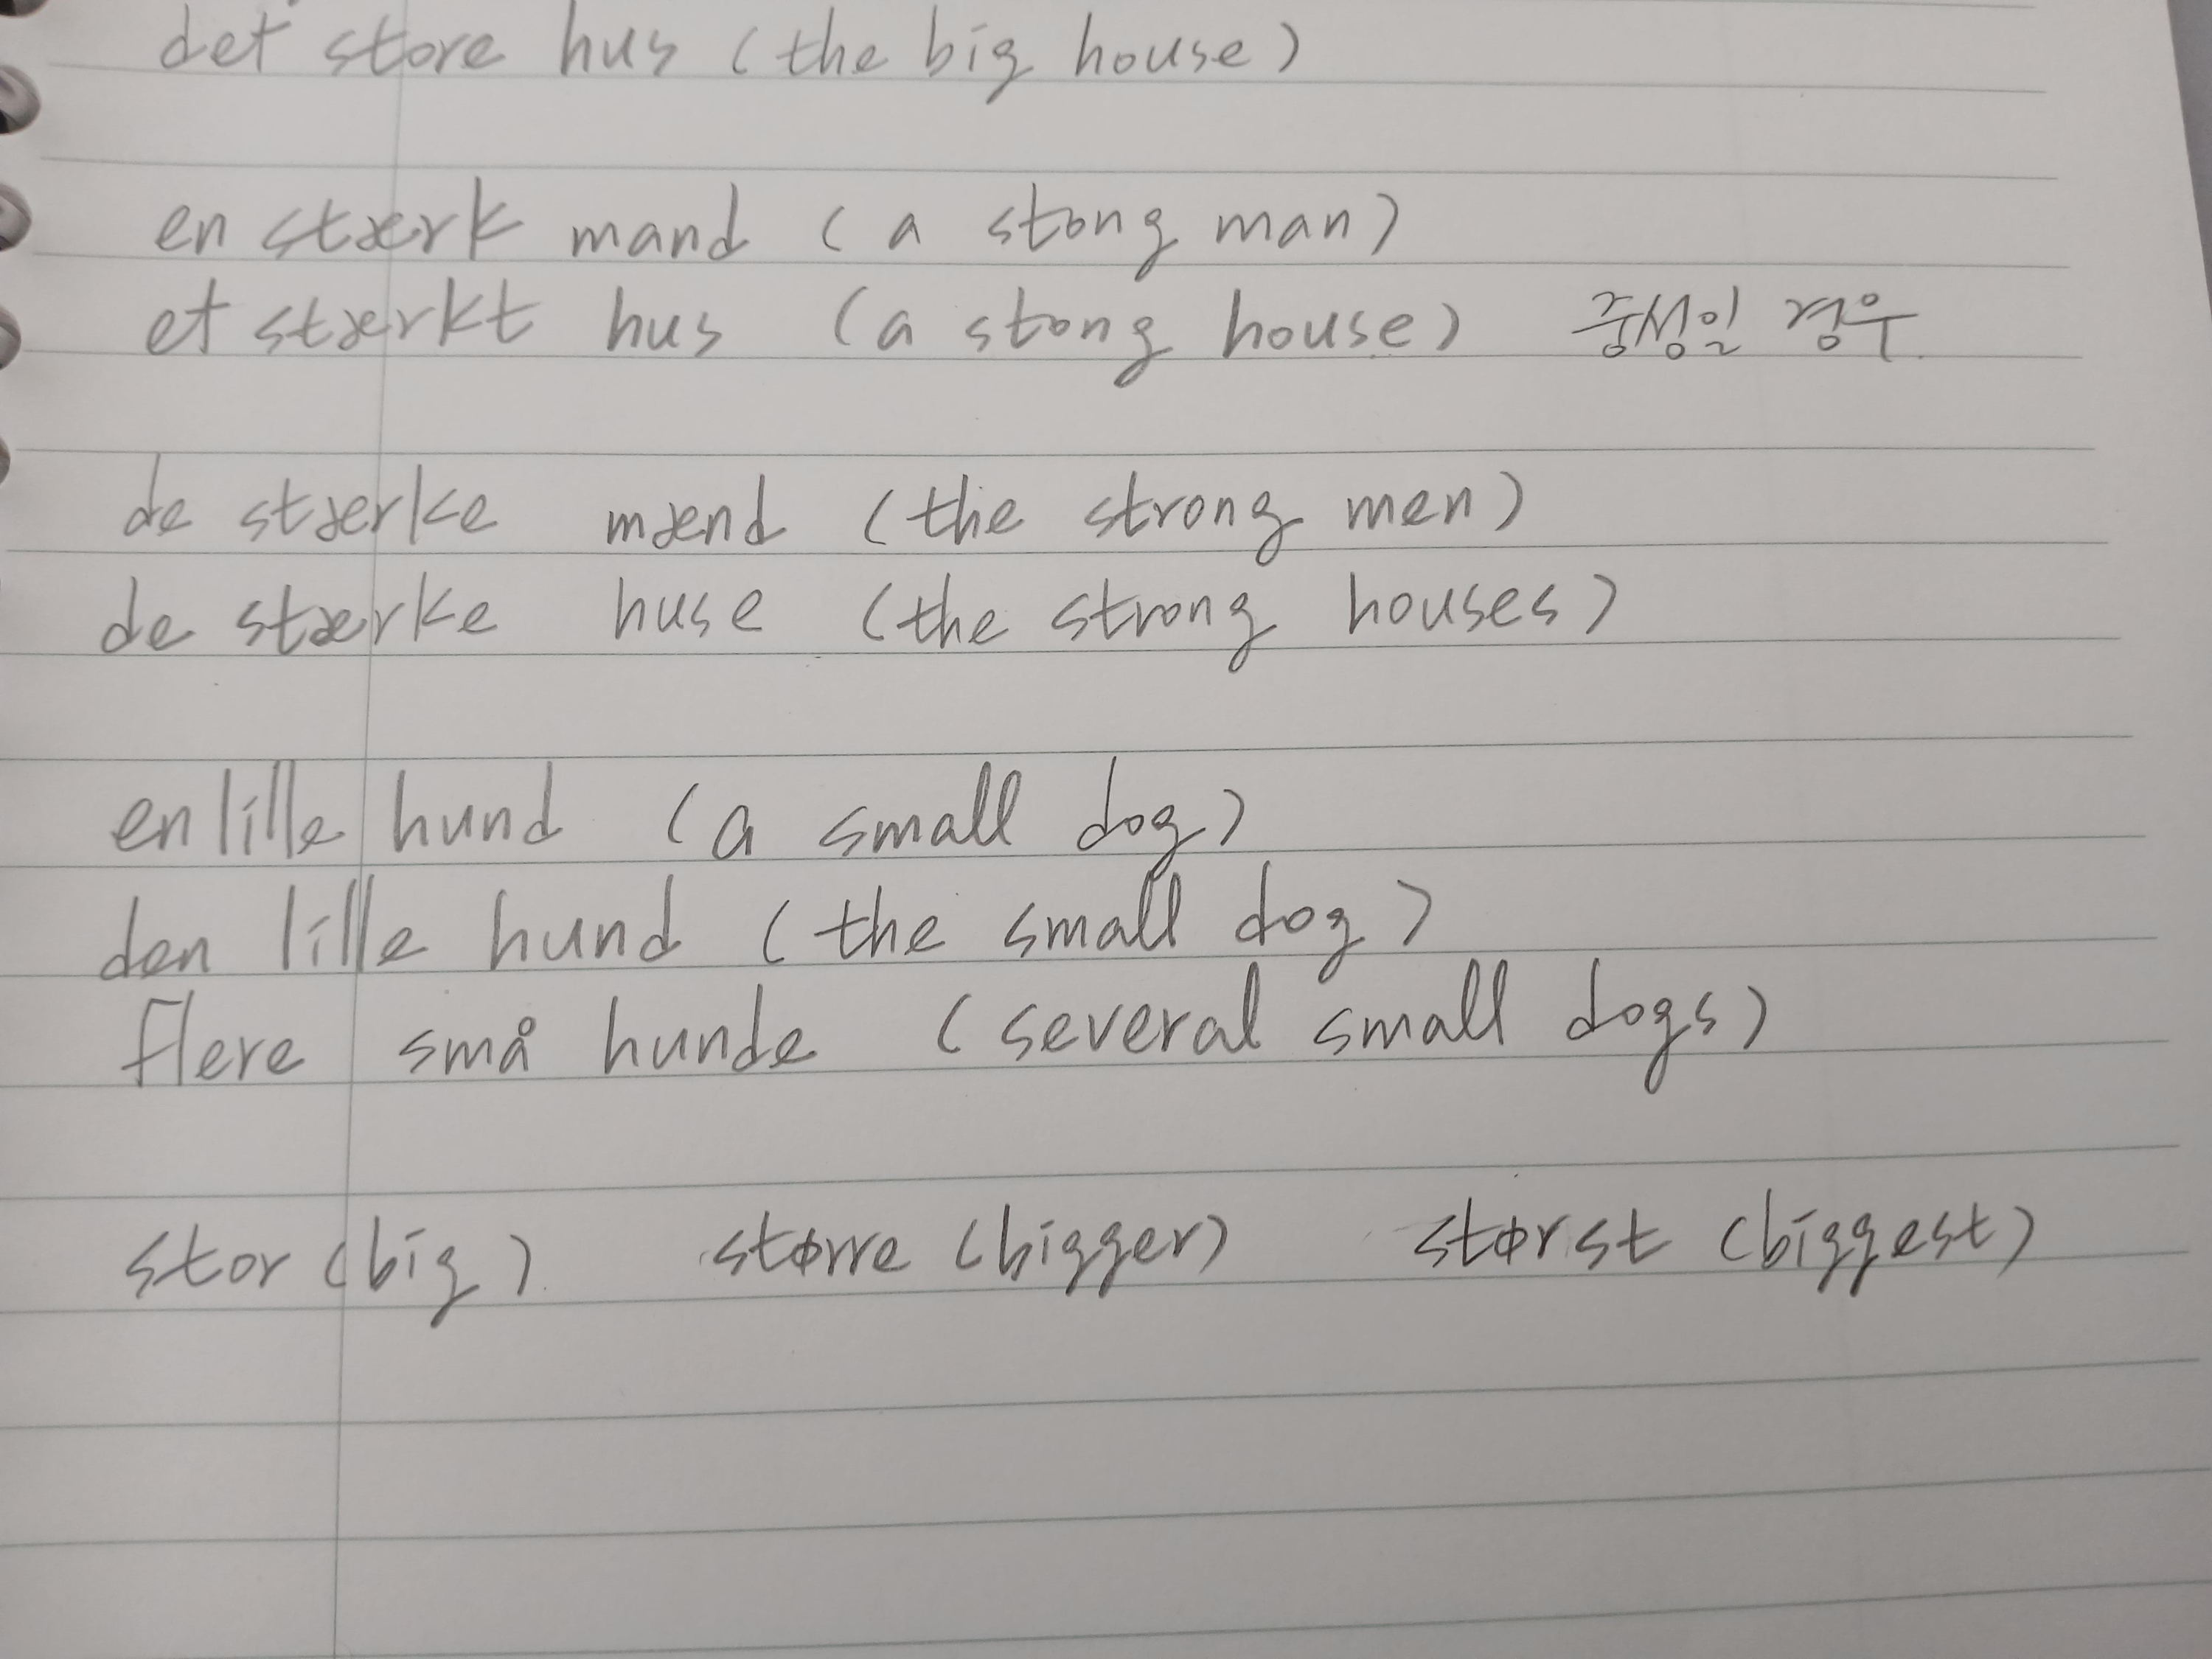 det store hus (the big house)
en stærk mand (a stong man)
et stærkt hus (a stong house) 중성일 경우.
de stærke mænd (the strong men)
de stærke huse (the strong houses)
en lille hund (a small dog)
den lille hund (the small dog)
flere små hunde (several small dogs)
stor (big) større (bigger) størst (biggest)